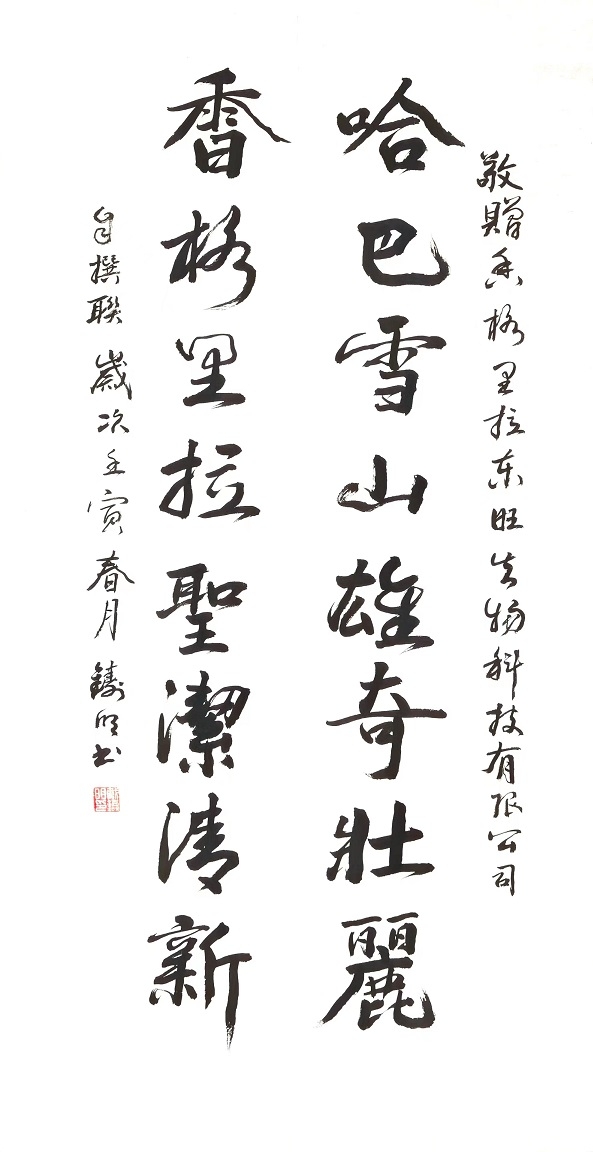 敬贈香格里拉东旺生物科技有限公司
哈巴雪山雄奇壯麗
香格里拉聖潔清新
自撰聯 歲次壬寅春月 鑄明书